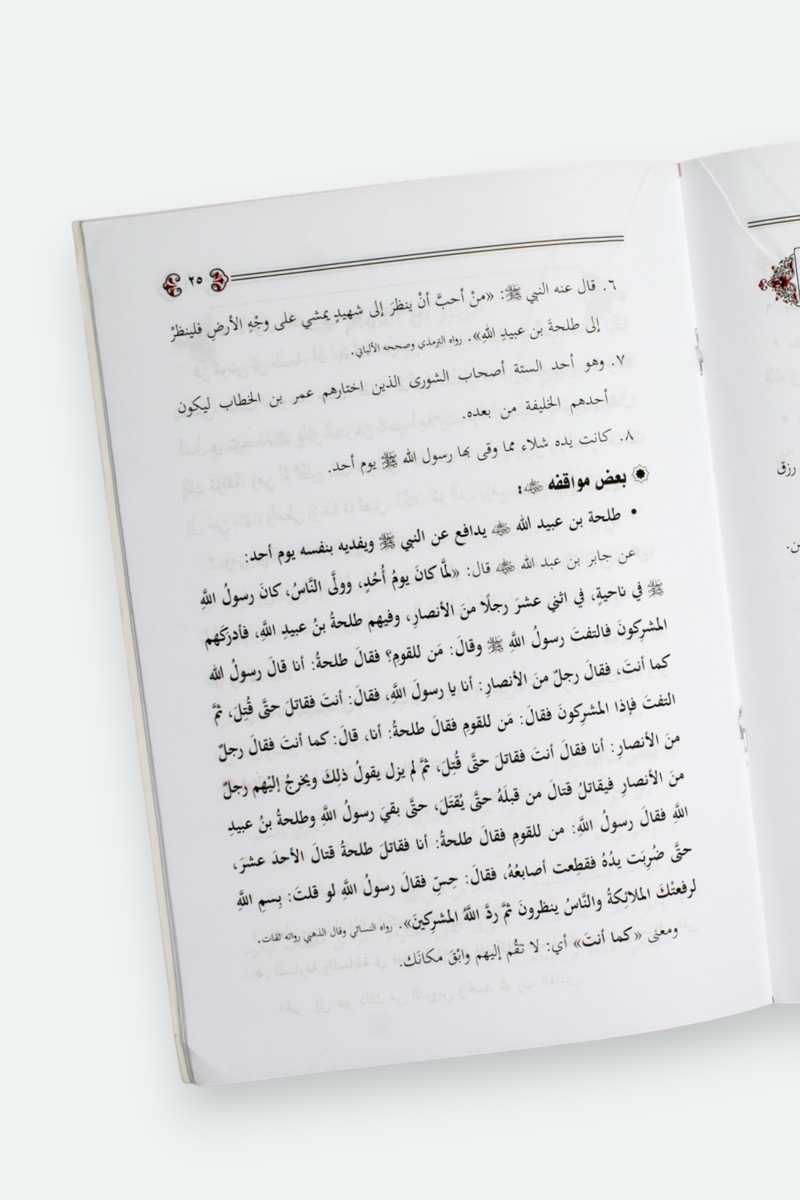 ٢٥
٦. قال عنه النبي ﷺ: «منْ أحبَّ أنْ ينظرَ إلى شهيدٍ يمشي على وجْهِ الأرضِ فلينظرْ
إلى طلحةَ بن عبيدِ اللهِ». رواه الترمذي وصححه الألباني.
٧. وهو أحد الستة أصحاب الشورى الذين اختارهم عمر بن الخطاب ليكون
أحدهم الخليفة من بعده.
٨. كانت يده شلاء مما وقى بها رسول الله ﷺ يوم أحد.
بعض مواقفه رضي الله عنه:
• طلحة بن عبيد الله رضي الله عنه يدافع عن النبي ﷺ ويفديه بنفسه يوم أحد:
عن جابر بن عبد الله رضي الله عنه قال: «لمَّا كانَ يومُ أُحُدٍ، وولَّى النَّاسُ، كانَ رسولُ اللَّهِ
ﷺ في ناحيةٍ، في اثني عشرَ رجلًا منَ الأنصارِ، وفيهم طلحةُ بنُ عبيدِ اللَّهِ، فأدرَكَهم
المشرِكونَ فالتفتَ رسولُ اللَّهِ ﷺ وقالَ: مَن للقومِ؟ فقالَ طلحةُ: أنا قالَ رسولُ الله
كما أنتَ، فقالَ رجلٌ منَ الأنصارِ: أنا يا رسولَ اللَّهِ، فقالَ: أنتَ فقاتلَ حتَّى قُتِلَ، ثمَّ
التفتَ فإذا المشرِكونَ فقالَ: مَن للقومِ فقالَ طلحةُ: أنا، قالَ: كما أنتَ فقالَ رجلٌ
منَ الأنصارِ: أنا فقالَ أنتَ فقاتلَ حتَّى قُتِلَ، ثمَّ لم يزل يقولُ ذلِكَ ويخرجُ إليْهم رجلٌ
منَ الأنصارِ فيقاتلُ قتالَ من قبلَهُ حتَّى يُقتَلَ، حتَّى بقيَ رسولُ اللَّهِ وطلحةُ بنُ عبيدِ
اللَّهِ فقالَ رسولُ اللَّهِ: من للقومِ فقالَ طلحةُ: أنا فقاتلَ طلحةُ قتالَ الأحدَ عشرَ،
حتَّى ضُرِبَت يدُهُ فقطِعت أصابعُهُ، فقالَ: حِسِّ فقالَ رسولُ اللَّهِ لو قلتَ: بِسمِ اللَّهِ
لرفعتْكَ الملائِكةُ والنَّاسُ ينظرونَ ثمَّ ردَّ اللَّهُ المشرِكينَ». رواه النسائي وقال الذهبي رواته ثقات.
ومعنى «كما أنتَ» أي: لا تقُم إليهم وابْقَ مكانَك.
رزق